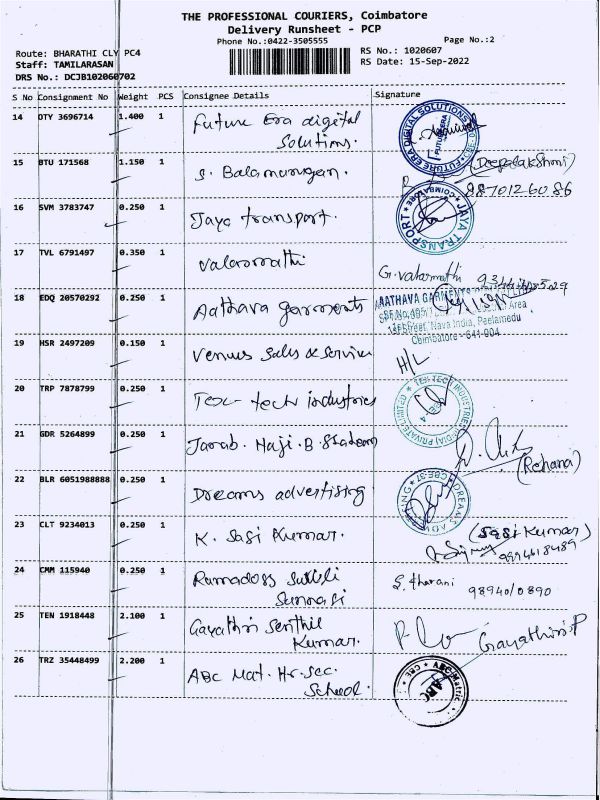 THE PROFESSIONAL COURIERS, Coimbatore
Delivery Runsheet - PCP
Phone No.:0422-3505555
Page No.:2
Route: BHARATHI CLY PC4
RS No.: 1020607
Staff: TAMILARASAN
RS Date: 15-Sep-2022
DRS No.: DCJB102060702
S No Consignment No Weight PCS Consignee Details Signature
14 OTY 3696714 1.400 1 Future Era digital
Solutions.
FUTURE ERA DIGITAL SOLUTIONS
15 BTU 171568 1.150 1 S. Balamurugan.
(Deepalakshmi)
8870126086
16 SVM 3783747 0.250 1 Jaya transport.
JAYA TRANSPORT COIMBATORE
17 TVL 6791497 0.350 1 Valarmathi
G. Valarmathi
18 EDQ 20570292 0.250 1 Aathava garments
AATHAVA GARMENTS
Area
Street, Nava India, Peelamedu
Coimbatore - 641 004
19 HSR 2497209 0.150 1 Venus Sales & Service
H/L
20 TRP 7878799 0.250 1 Tex-tech industries
TEX-TECH INDUSTRIES (INDIA) PRIVATE LIMITED
21 GDR 5264899 0.250 1 Jarab. Haji. B.
(Rehana)
22 BLR 6051988888 0.250 1 Dreams advertising
DREAMS ADVERTISING CBE-37
23 CLT 9234013 0.250 1 K. Sasi Kumar.
(Sasi Kumar)
9994618489
24 CMM 115940 0.250 1 Ramadoss
S. tharani 98940/0890
25 TEN 1918448 2.100 1 Gayathri Senthil
Kumar.
Gayathiri P
26 TRZ 35448499 2.200 1 ABC Mat. Hr. Sec.
School.
ABC Matric CBE
ABC